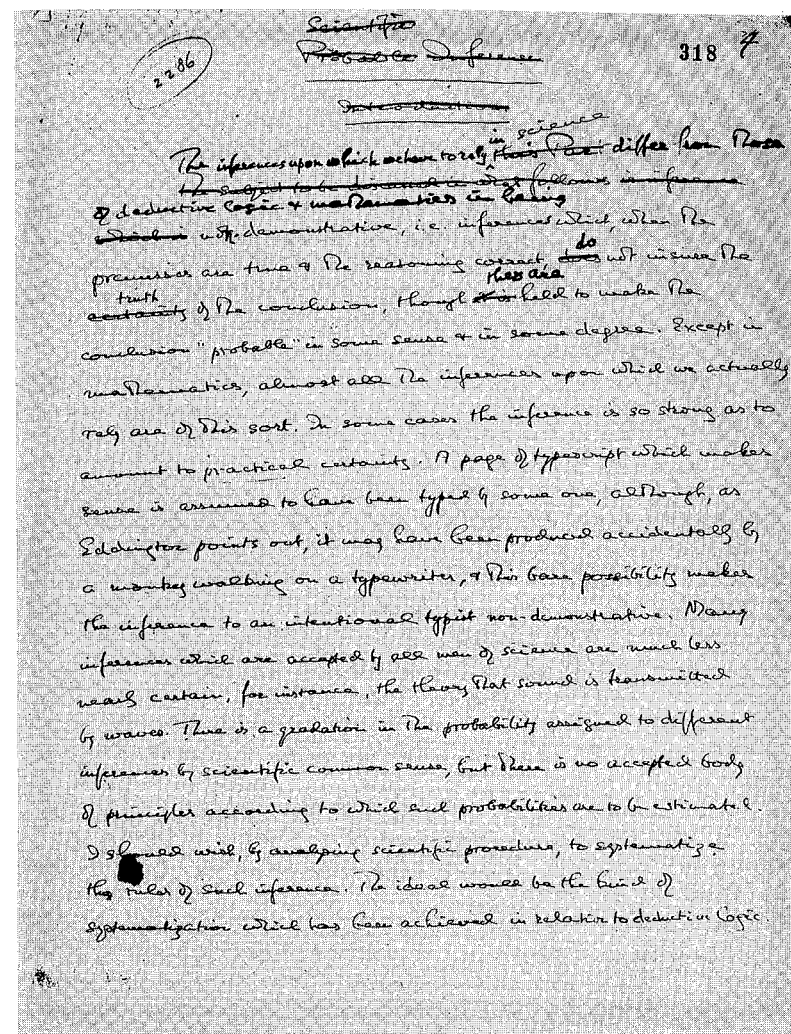 Scientific
Probable Inference
318 4
2286
Introduction
in science
The inferences upon which we have to rely this Part differ from those
The subject to be discussed in what follows is inference
of deductive logic & mathematics in being
which is not-demonstrative, i.e. inferences which, when the
do
premisses are true & the reasoning correct, does not insure the
truth they are
certainty of the conclusion, though it is held to make the
conclusion "probable" in some sense & in some degree. Except in
mathematics, almost all the inferences upon which we actually
rely are of this sort. In some cases the inference is so strong as to
amount to practical certainty. A page of typescript which makes
sense is assumed to have been typed by some one, although, as
Eddington points out, it may have been produced accidentally by
a monkey walking on a typewriter, & this bare possibility makes
the inference to an intentional typist non-demonstrative. Many
inferences which are accepted by all men of science are much less
nearly certain, for instance, the theory that sound is transmitted
by waves. There is a gradation in the probability assigned to different
inferences by scientific common sense, but there is no accepted body
of principles according to which such probabilities are to be estimated.
I should wish, by analysing scientific procedure, to systematize
the rules of such inference. The ideal would be the kind of
systematization which has been achieved in relation to deductive logic.